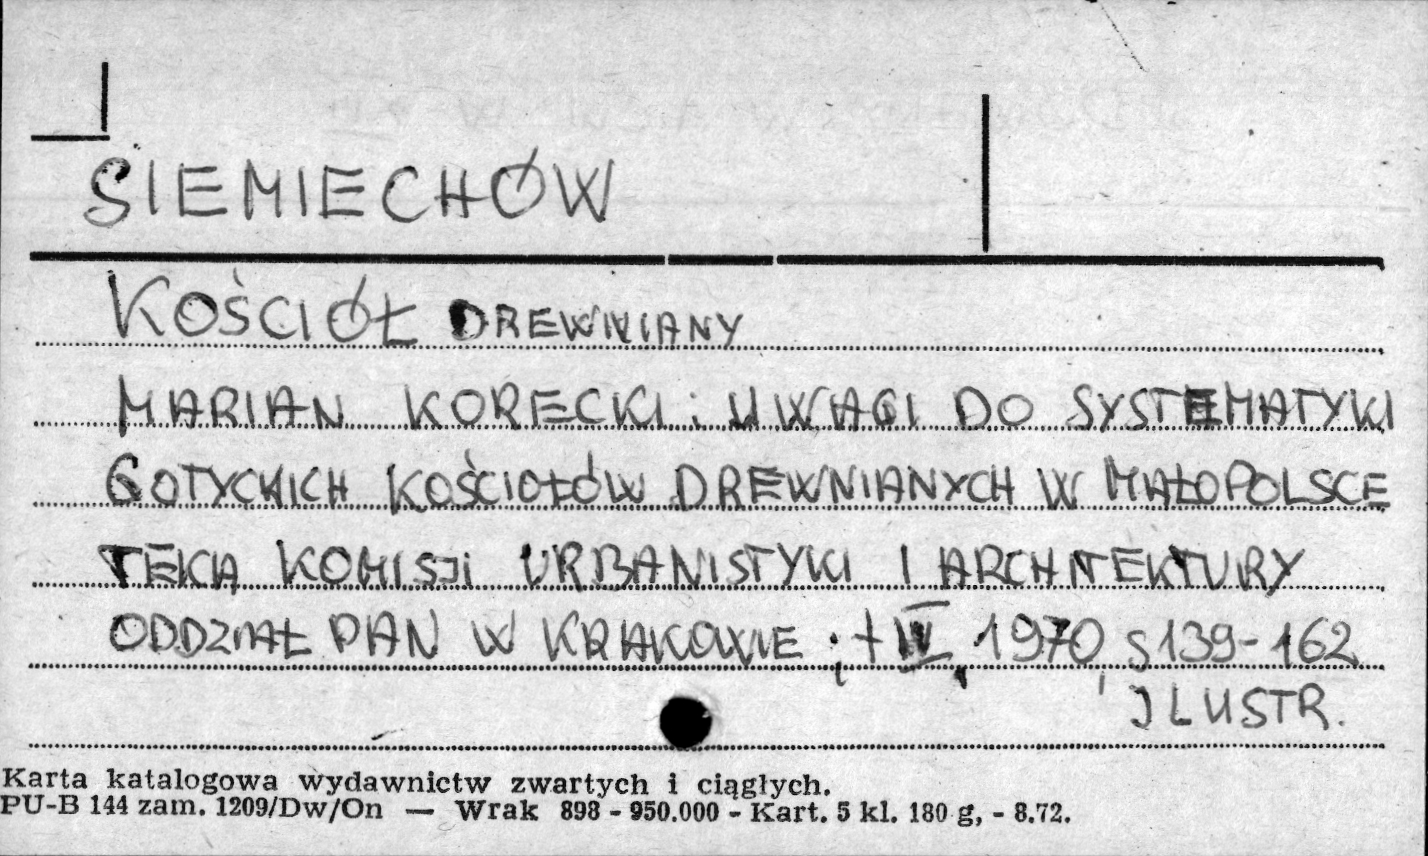 SIEMIECHÓW
KOŚCIÓŁ DREWNIANY
MARIAN KORECKI: UWAGI DO SYSTEMATYKI
GOTYCKICH KOŚCIOŁÓW DREWNIANYCH W MAŁOPOLSCE
TEKA KOMISJI URBANISTYKI I ARCHITEKTURY
ODDZIAŁ PAN W KRAKOWIE ; t IV, 1970, S 139-162
ILUSTR.
Karta katalogowa wydawnictw zwartych i ciągłych.
PU-B 144 zam. 1209/Dw/On — Wrak 898 - 950.000 - Kart. 5 kl. 180 g, - 8.72.